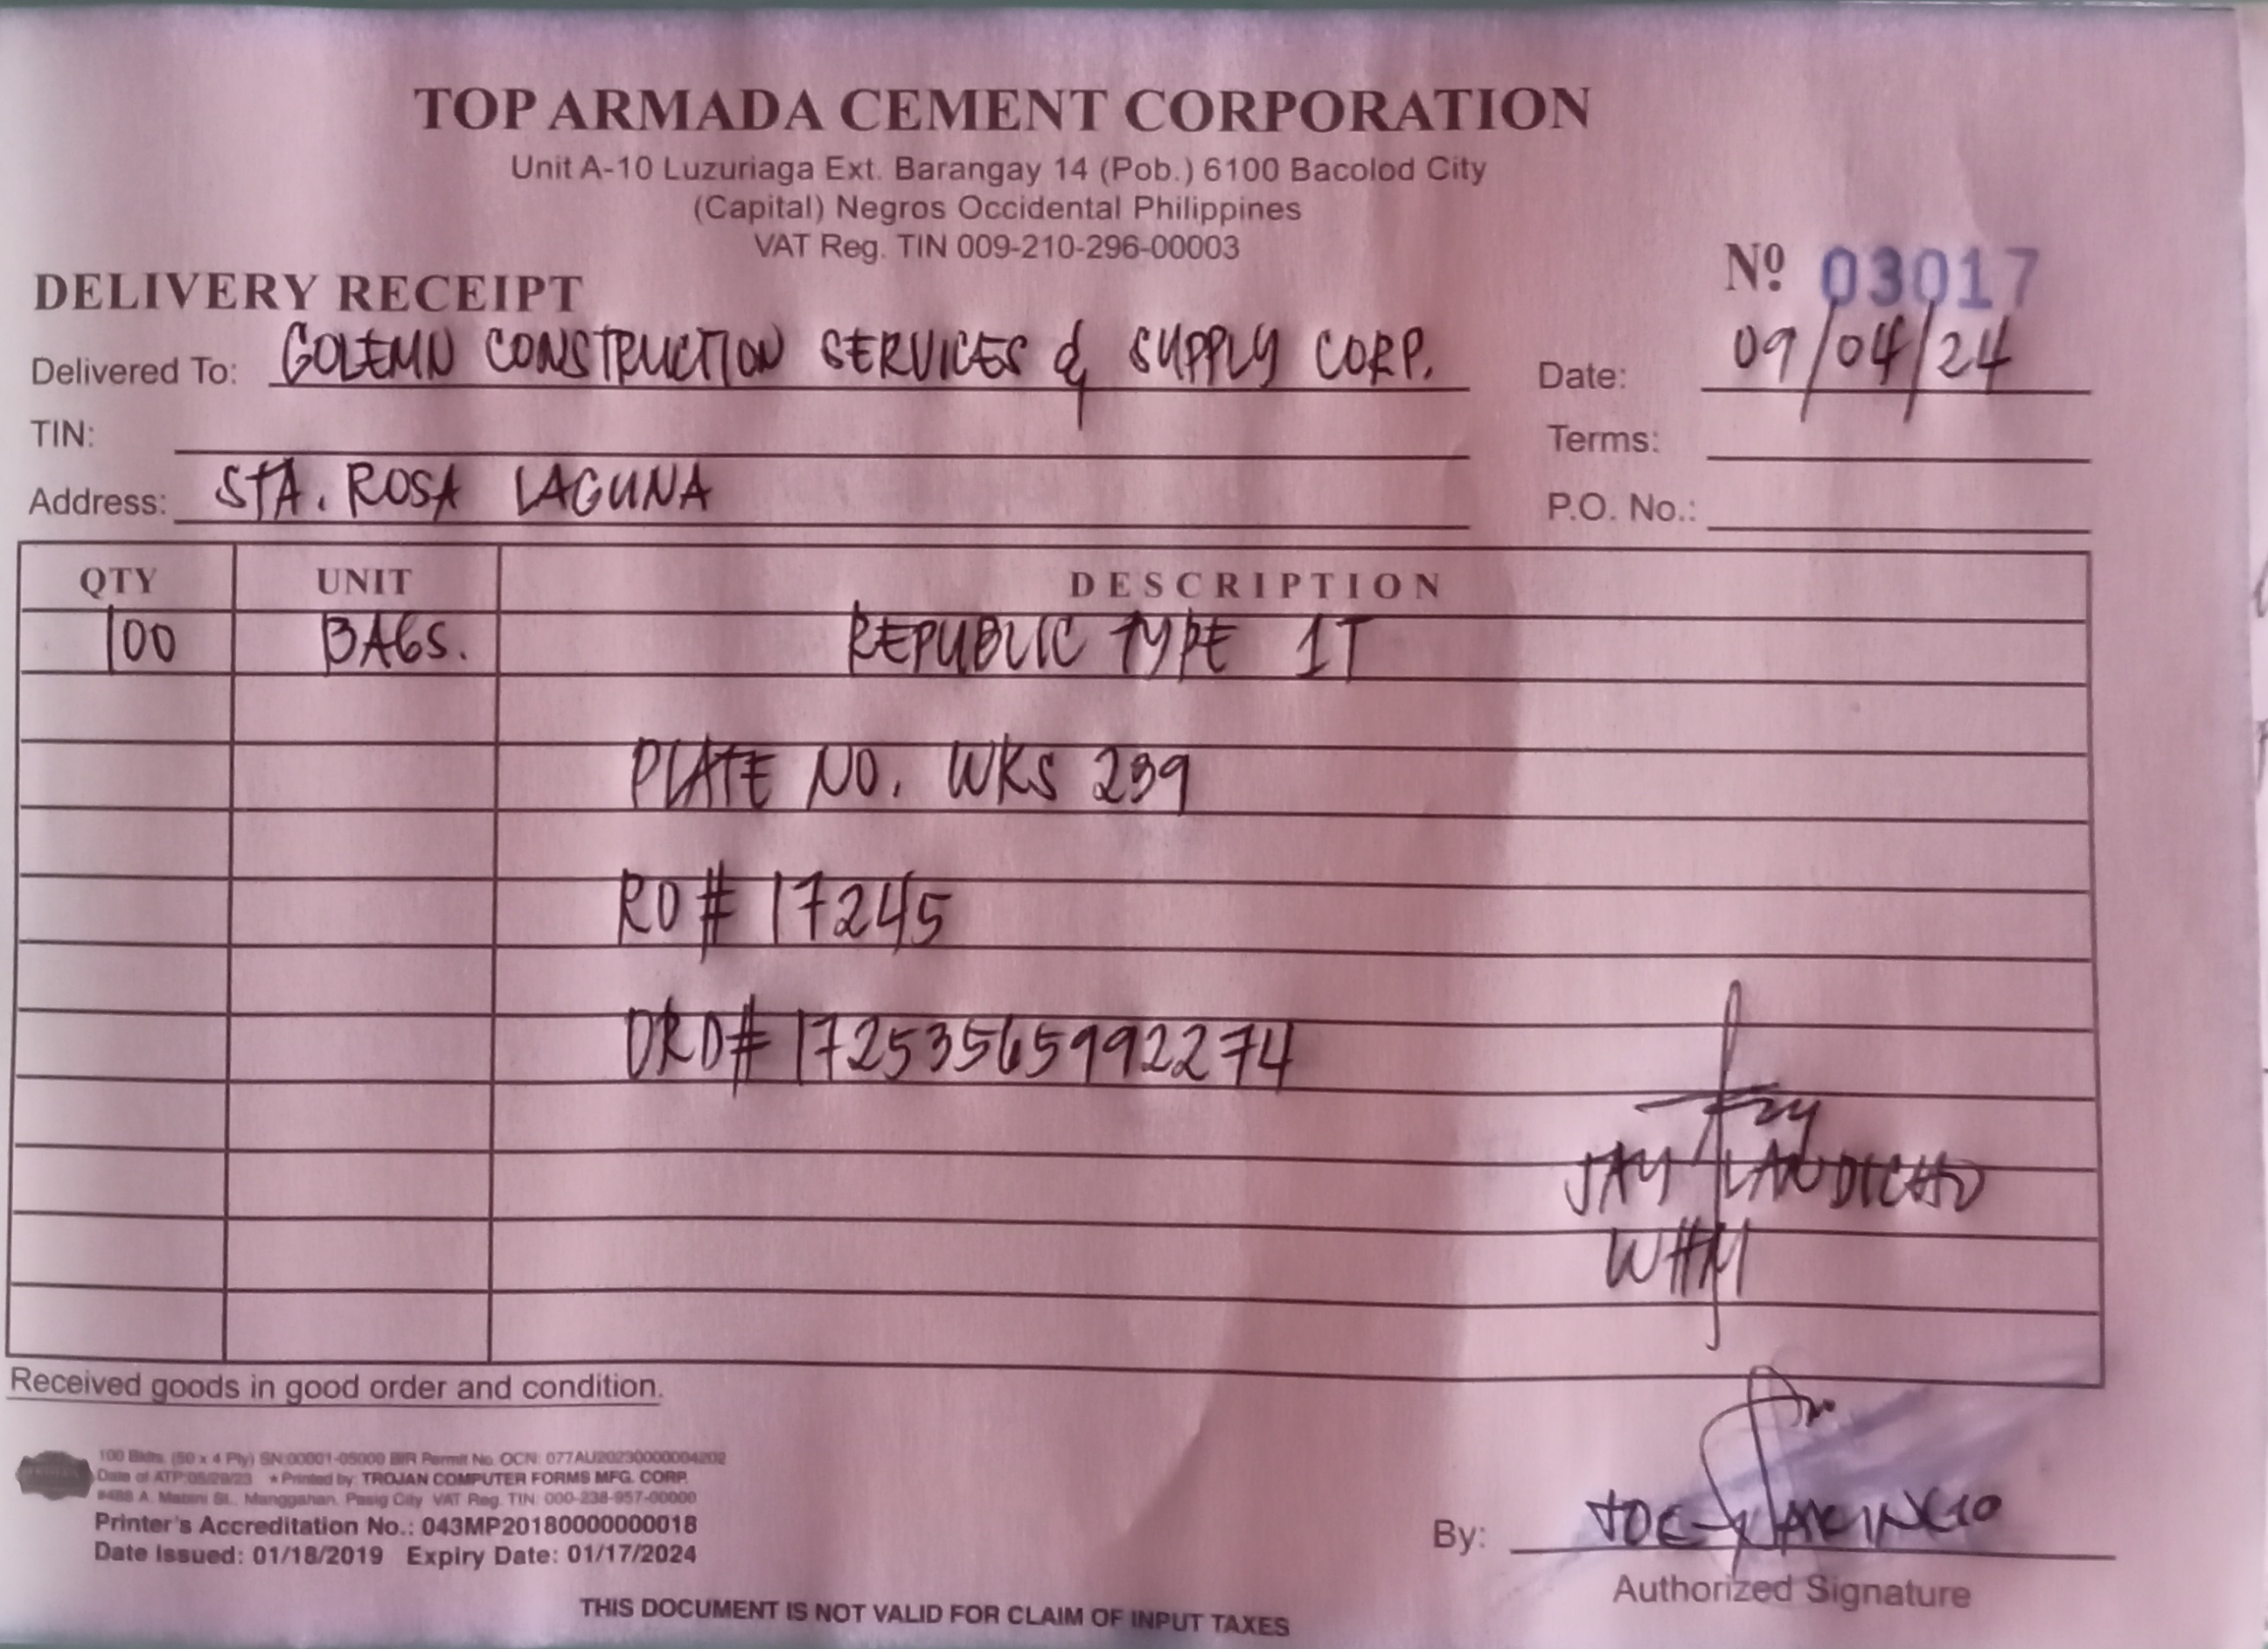 TOP ARMADA CEMENT CORPORATION
Unit A-10 Luzuriaga Ext. Barangay 14 (Pob.) 6100 Bacolod City
(Capital) Negros Occidental Philippines
VAT Reg. TIN 009-210-296-00003
Nº 03017
DELIVERY RECEIPT
Delivered To: GOLEMN CONSTRUCTION SERVICES & SUPPLY CORP. Date: 09/04/24
TIN: Terms:
Address: STA. ROSA LAGUNA P.O. No.:
QTY UNIT DESCRIPTION
100 BAGS. REPUBLIC TYPE 1T
PLATE NO. WKS 239
RO# 17245
ORD# 17253565992274
JAY LANDICHO
WHM
Received goods in good order and condition.
100 Bklts. (50 x 4 Ply) SN:00001-05000 BIR Permit No. OCN: 077AU20230000004202
Date of ATP:05/29/23 * Printed by: TROJAN COMPUTER FORMS MFG. CORP.
#488 A. Mabini St., Manggahan, Pasig City VAT Reg. TIN: 000-238-957-00000
Printer's Accreditation No.: 043MP20180000000018
Date Issued: 01/18/2019 Expiry Date: 01/17/2024
By: JOE
Authorized Signature
THIS DOCUMENT IS NOT VALID FOR CLAIM OF INPUT TAXES